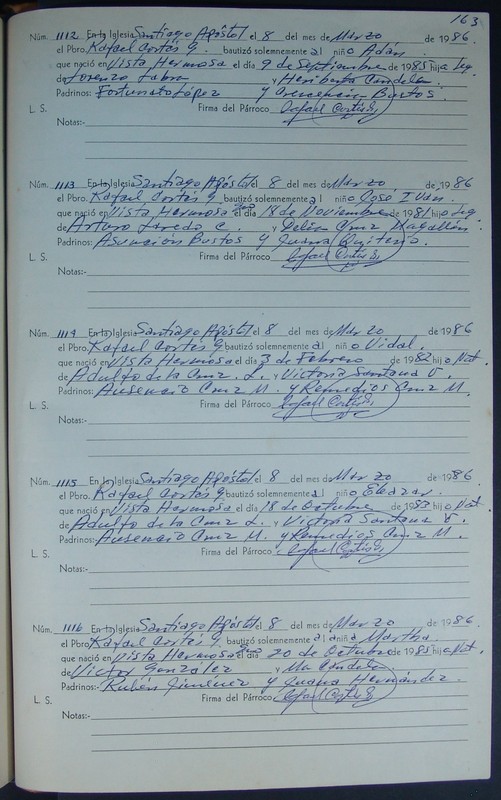 163
Núm. 1112 En la Iglesia Santiago Apóstol el 8 del mes de Marzo de 1986.
el Pbro. Rafael Cortés G. bautizó solemnemente al niño Adán
que nació en Vista Hermosa el día 9 de Septiembre de 1985 hijo Leg.
de Lorenzo Labra y Heriberta Candela.
Padrinos: Fortunato López y Crecencia Bustos.
L. S. Firma del Párroco Rafael Cortés G.
Notas:-
Núm. 1113 En la Iglesia Santiago Apóstol el 8 del mes de Marzo de 1986
el Pbro. Rafael Cortés G. bautizó solemnemente al niño José Ivan.
que nació en Vista Hermosa el día 18 de Noviembre de 1981 hijo Leg.
de Arturo Laredo C. y Delia Cruz Magallón.
Padrinos: Asunción Bustos y Juana Quiterio.
L. S. Firma del Párroco Rafael Cortés G.
Notas:-
Núm. 1114 En la Iglesia Santiago Apóstol el 8 del mes de Marzo de 1986
el Pbro. Rafael Cortés G. bautizó solemnemente al niño Vidal.
que nació en Vista Hermosa el día 3 de Febrero de 1982 hijo Nat.
de Adulfo de la Cruz L. y Victoria Santana V.
Padrinos: Ausencio Cruz M. y Remedios Cruz M.
L. S. Firma del Párroco Rafael Cortés G.
Notas:-
Núm. 1115 En la Iglesia Santiago Apóstol el 8 del mes de Marzo de 1986.
el Pbro. Rafael Cortés G. bautizó solemnemente al niño Eleazar.
que nació en Vista Hermosa el día 18 de Octubre de 1983 hijo Nat.
de Adulfo de la Cruz L. y Victoria Santana V.
Padrinos: Ausencio Cruz M. y Remedios Cruz M.
L. S. Firma del Párroco Rafael Cortés G.
Notas:-
Núm. 1116 En la Iglesia Santiago Apóstol el 8 del mes de Marzo de 1986.
el Pbro. Rafael Cortés G. bautizó solemnemente a la niña Martha.
que nació en Vista Hermosa el día 20 de Octubre de 1985 hija Nat.
de Victor González y Ma. Candela.
Padrinos:- Rubén Jiménez y Juana Hernández.
L. S. Firma del Párroco Rafael Cortés G.
Notas:-